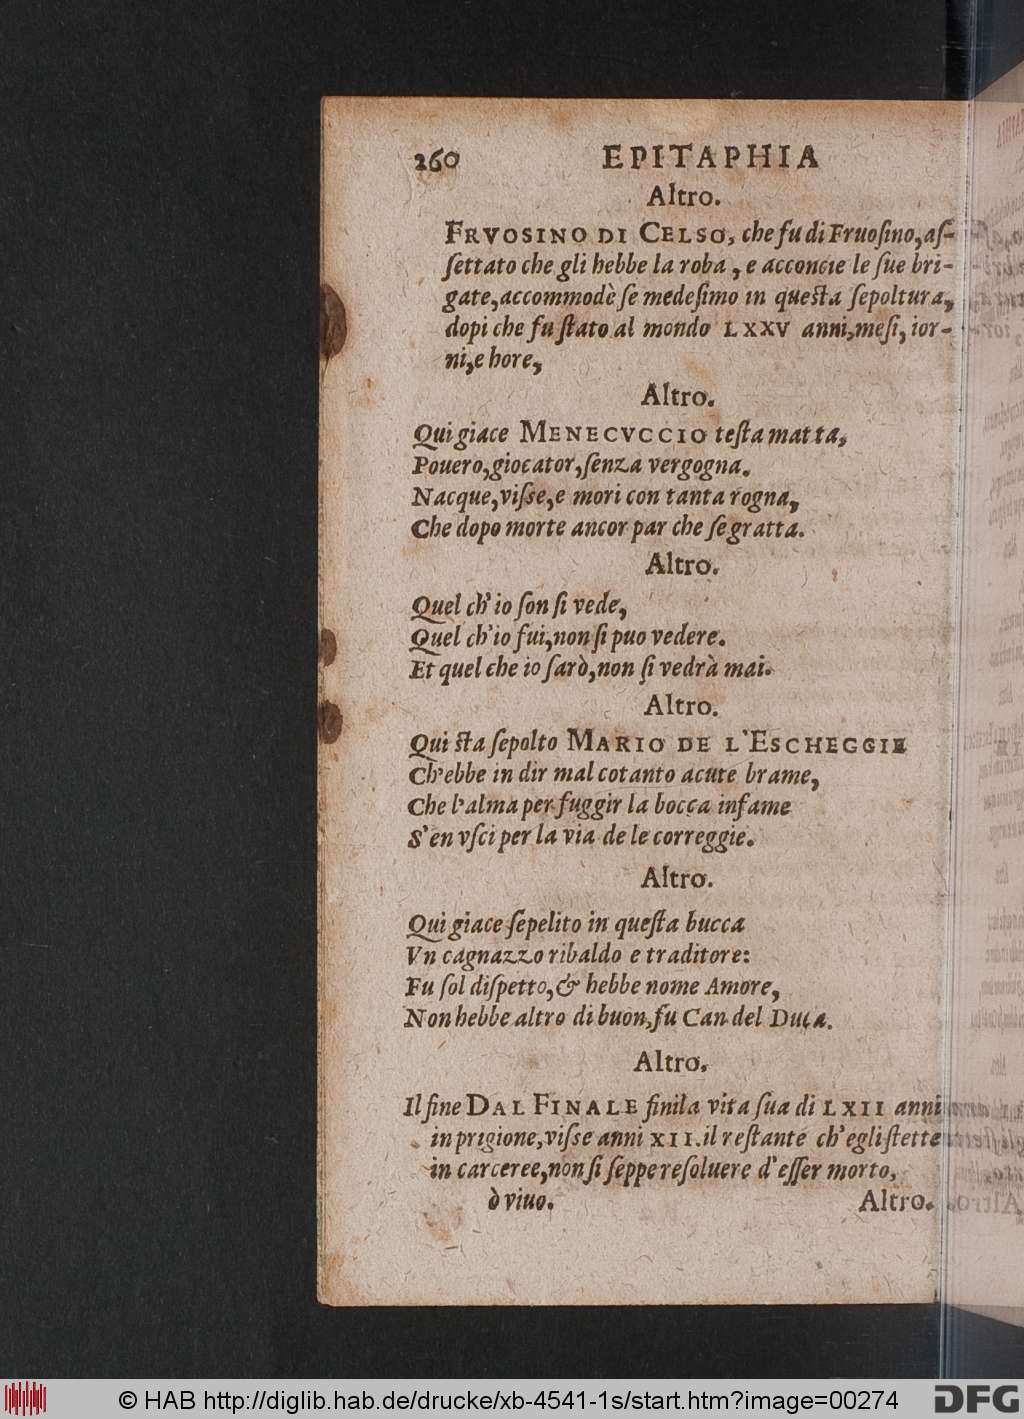 260 EPITAPHIA
Altro.
FRVOSINO DI CELSO, che fu di Fruoſino, aſ-
ſettato che gli hebbe la roba, e acconcie le ſue bri-
gate, accommodè ſe medeſimo in queſta ſepoltura,
dopi che fu ſtato al mondo LXXV anni, meſi, ior-
ni, e hore,
Altro.
Qui giace MENECVCCIO teſta matta,
Pouero, giocator, ſenza vergogna.
Nacque, viſſe, e mori con tanta rogna,
Che dopo morte ancor par che ſe gratta.
Altro.
Quel ch'io ſon ſi vede,
Quel ch'io fui, non ſi puo vedere.
Et quel che io ſarò, non ſi vedrà mai.
Altro.
Qui ſta ſepolto MARIO DE L'ESCHEGGIE
Ch'ebbe in dir mal cotanto acute brame,
Che l'alma per fuggir la bocca infame
S'en vſci per la via de le correggie.
Altro.
Qui giace ſepelito in queſta bucca
Vn cagnazzo ribaldo e traditore:
Fu ſol diſpetto, & hebbe nome Amore,
Non hebbe altro di buon, fu Can del Duca.
Altro.
Il fine DAL FINALE finila vita ſua di LXII anni
in prigione, viſſe anni XII. il reſtante ch'egli ſtette
in carceree, non ſi ſeppe reſoluere d'eſſer morto,
ò viuo. Altro.
© HAB http://diglib.hab.de/drucke/xb-4541-1s/start.htm?image=00274
DFG